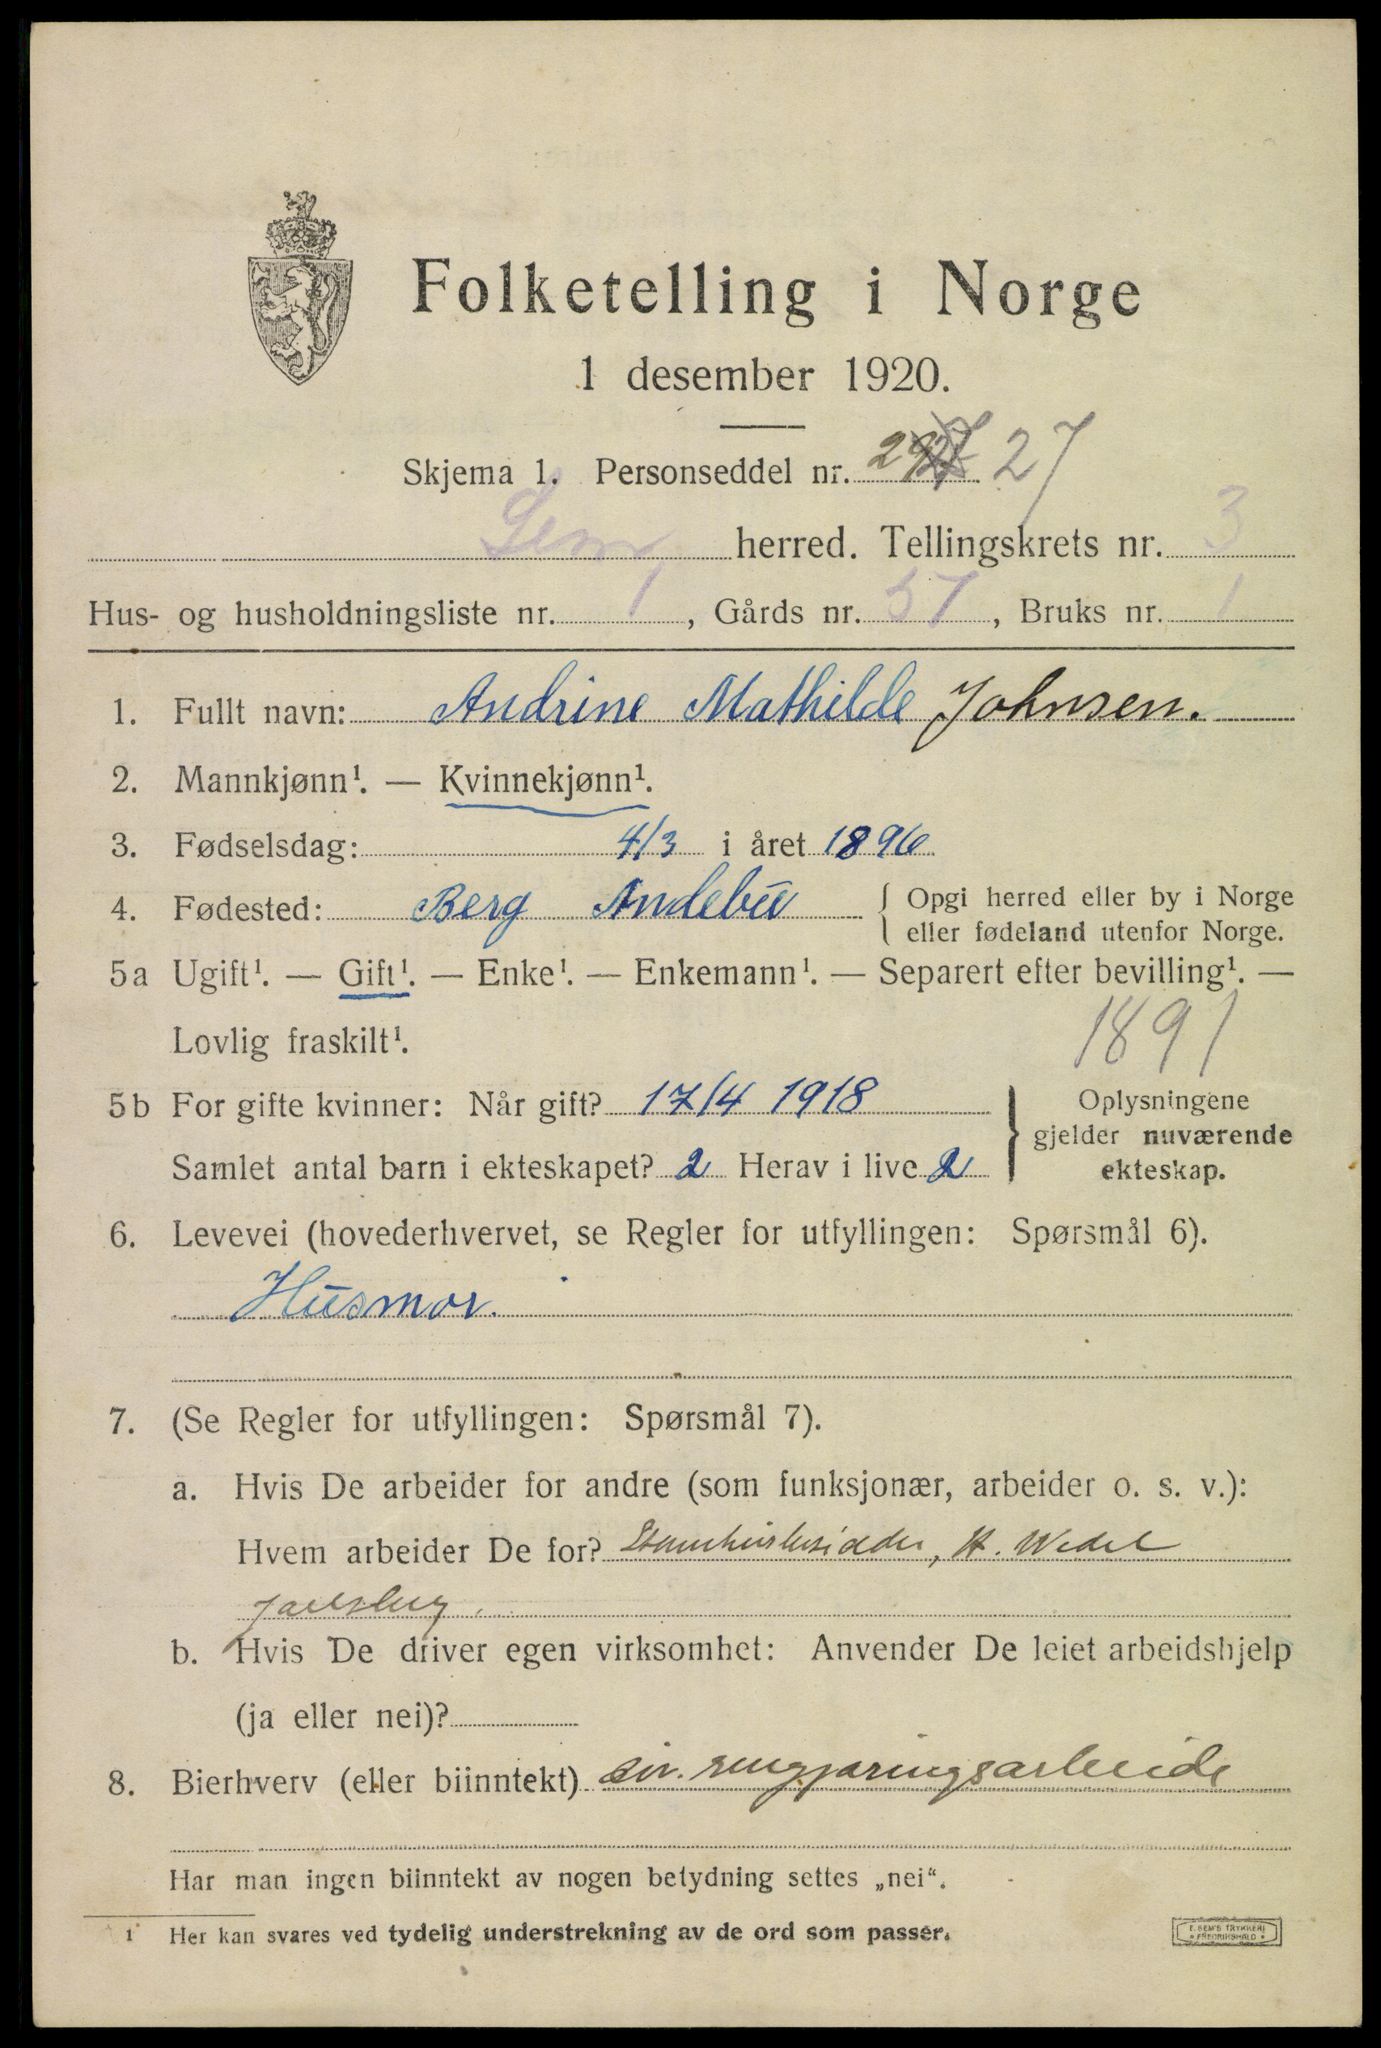 Folketelling i Norge
1 desember 1920.
Skjema 1. Personseddel nr. 27
Sem herred. Tellingskrets nr. 3
Hus- og husholdningsliste nr. 1, Gårds nr. 57, Bruks nr. 1
1. Fullt navn: Andrine Mathilde Johnsen.
2. Mannkjønn¹. — Kvinnekjønn¹.
3. Fødselsdag: 4/3 i året 1896
4. Fødested: Berg Andebu { Opgi herred eller by i Norge
eller fødeland utenfor Norge.
5a Ugift¹. — Gift¹. — Enke¹. — Enkemann¹. — Separert efter bevilling¹. —
Lovlig fraskilt¹. 1891
5b For gifte kvinner: Når gift? 17/4 1918
Samlet antal barn i ekteskapet? 2 Herav i live 2
} Oplysningene
gjelder nuværende
ekteskap.
6. Levevei (hovederhvervet, se Regler for utfyllingen: Spørsmål 6).
Husmor.
7. (Se Regler for utfyllingen: Spørsmål 7).
a. Hvis De arbeider for andre (som funksjonær, arbeider o. s. v.):
Hvem arbeider De for? Stamhusbesidder, H. Wedel
Jarlsberg.
b. Hvis De driver egen virksomhet: Anvender De leiet arbeidshjelp
(ja eller nei)?
8. Bierhverv (eller biinntekt) div. rengjøringsarbeide
Har man ingen biinntekt av nogen betydning settes „nei“.
1 Her kan svares ved tydelig understrekning av de ord som passer.
E. SEM'S TRYKKERI
* FREDRIKSHALD *